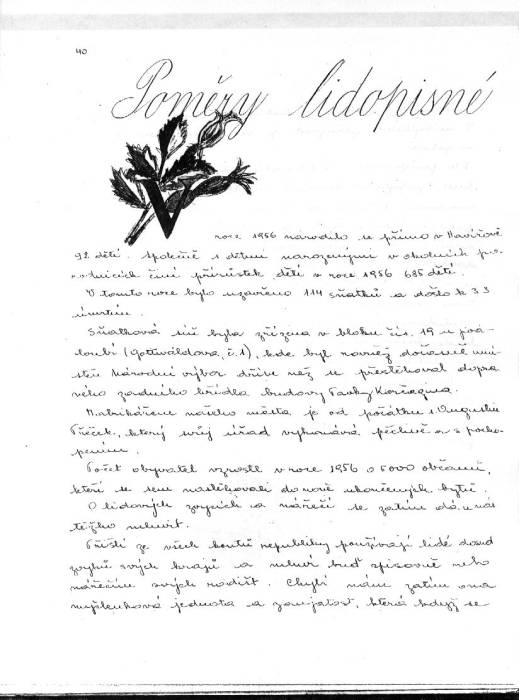 40
Poměry lidopisné
V roce 1956 narodilo se přímo v Havířově
92 dětí. Společně s dětmi narozenými v okolních po-
rodnicích činí přírůstek dětí v roce 1956 685 dětí.
V tomto roce bylo uzavřeno 114 sňatků a došlo k 33
úmrtím.
Sňatková síň byla zřízena v bloku čís. 19 u pod-
loubí (Gottwaldova č. 1), kde byl rovněž dočasně umí-
stěn Národní výbor dříve než se přestěhoval do pra-
vého zadního křídla budovy Pavky Korčagina.
Matrikářem našeho města je od počátku s. Augustin
Tříček, který svůj úřad vykonává pečlivě a s pocho-
pením.
Počet obyvatel vzrostl v roce 1956 o 5000 občanů,
kteří se sem nastěhovali do nově ukončených bytů.
O lidových zvycích a nářečí se zatím dá u nás
těžko mluvit.
Přišlí ze všech koutů republiky používají lidé dosud
zvyků svých krajů a mluví buď spisovně nebo
nářečím svých rodišť. Chybí nám zatím ona
myšlenková jednota a zaujatost, která když se